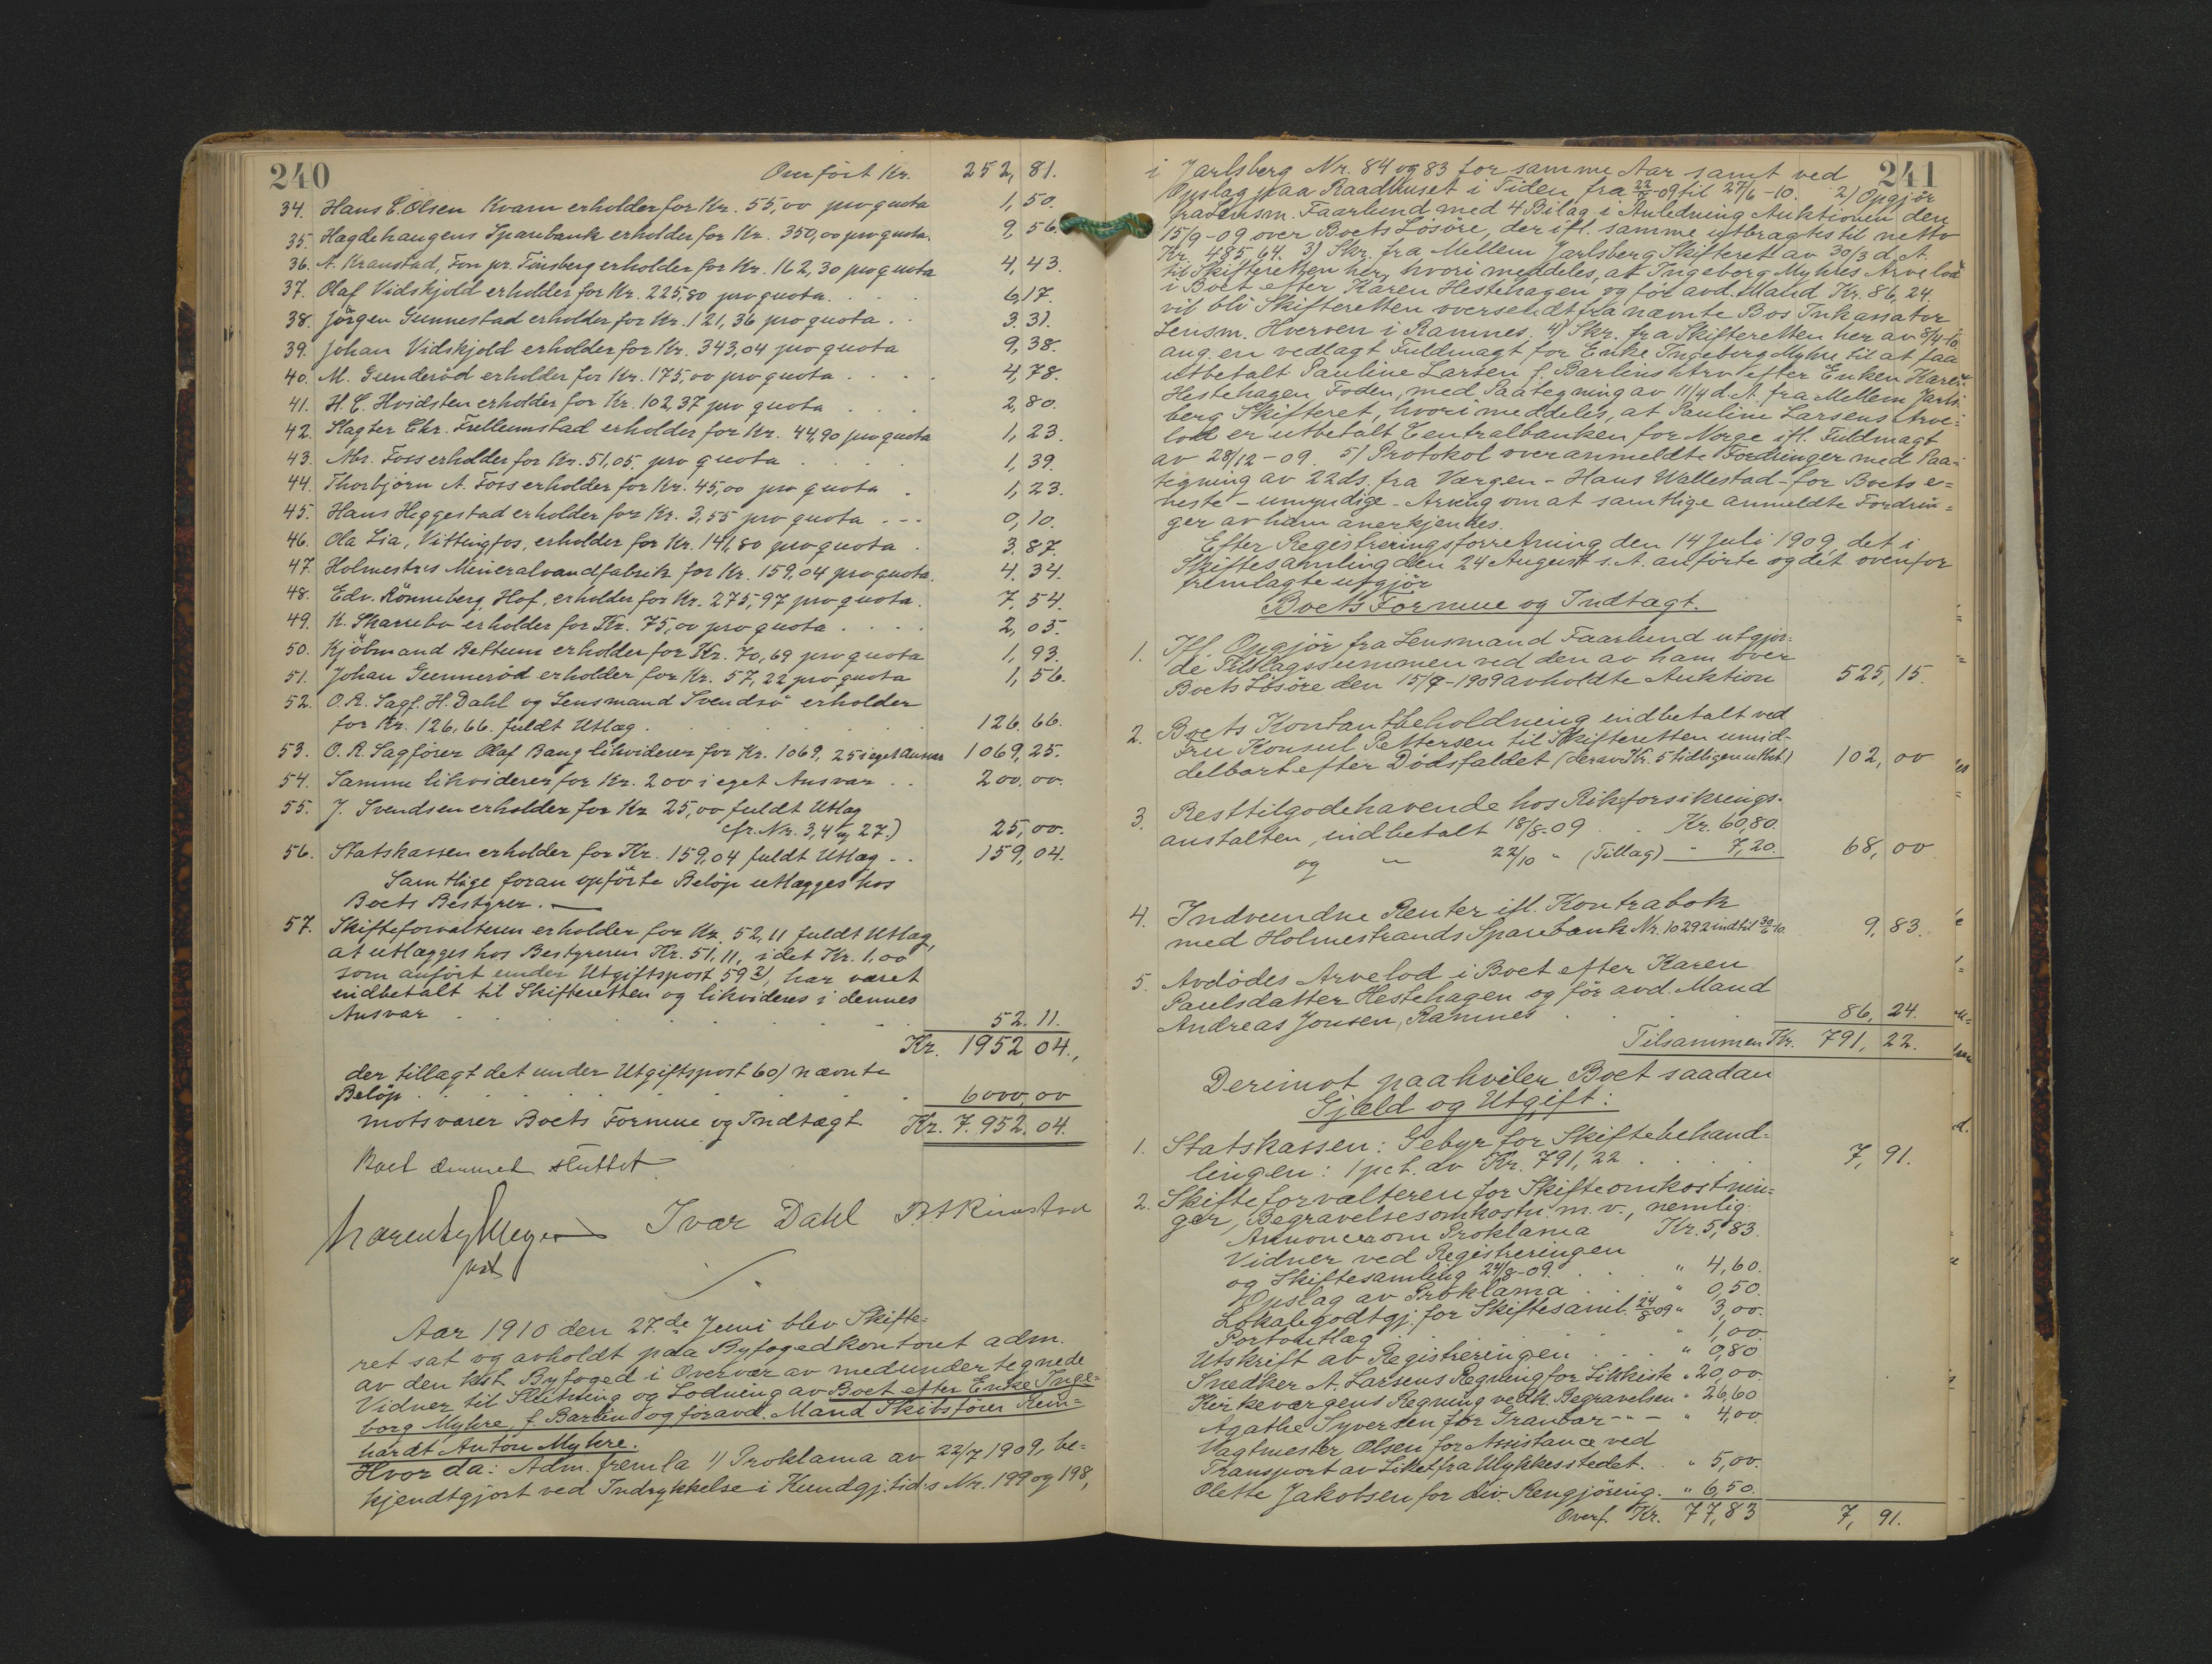 240
Overført Kr. 252,81.
34. Hans C. Olsen Kvam erholder for Kr. 55,00 pro quota 1,50.
35. Hagdehaugens Sparebank erholder for Kr. 350,00 pro quota. 9,56.
36. A. Kranstad, Fon pr. Tönsberg erholder for Kr. 162,30 pro quota 4,43.
37. Olaf Vidskjold erholder for Kr. 225,80 pro quota. 6,17.
38. Jörgen Gunnestad erholder for Kr. 121,36 pro quota. 3.31.
39. Johan Vidskjold erholder for Kr. 343,04 pro quota 9,38.
40. M. Gunderöd erholder for Kr. 175,00 pro quota 4,78.
41. H. C. Hvidsten erholder for Kr. 102,37 pro quota 2,80.
42. Slagter Chr. Frellumstad erholder for Kr. 44,90 pro quota 1,23.
43. Abr. Foss erholder for Kr. 51,05. pro quota 1,39.
44. Thorbjörn A. Foss erholder for Kr. 45,00 pro quota 1,23.
45. Hans Heggestad erholder for Kr. 3,55 pro quota 0,10.
46. Ola Lia, Vittingfos, erholder for Kr. 141,80 pro quota 3.87.
47. Holmestr's Mineralvandfabrik for Kr. 159,04 pro quota. 4.34.
48. Edv. Rönneberg, Hof, erholder for Kr. 275,97 pro quota. 7,54.
49. K. Skarrebo erholder for Kr. 75,00 pro quota 2,05.
50. Kjöbmand Bettum erholder for Kr. 70,69 pro quota 1,93.
51. Johan Gunneröd erholder for Kr. 57,22 pro quota 1,56.
52. O.R. Sagf. H. Dahl og Lensmand Svendsö erholder
for Kr. 126,66. fuldt Utlæg. 126.66.
53. O. R. Sagförer Olaf Bang likviderer for Kr. 1069,25 i eget Ansvar 1069,25.
54. Samme likviderer for Kr. 200 i eget Ansvar 200.00.
55. J. Svendsen erholder for Kr 25,00 fuldt Utlæg
(fr. Nr. 3,4 og 27.) 25,00.
56. Statskassen erholder for Kr. 159,04 fuldt Utlæg 159,04.
Samtlige foran opförte Belöp utlægges hos
Boets Bestyrer.
57. Skifteforvalteren erholder for Kr. 52,11 fuldt Utlæg,
at utlægges hos Bestyreren Kr. 51,11, idet Kr. 1,00
som anfört under Utgiftspost 59 2), har været
indbetalt til Skifteretten og likvideres i dennes
Ansvar 52.11.
Kr. 1952 04.,
der tillagt det under Utgiftspost 60) nævnte
Belöp 6000,00
motsvarer Boets Formue og Indtægt. Kr. 7.952.04.
Boet dermed sluttet
Ivar Dahl
Aar 1910 den 27.de Juni blev Skifte=
ret sat og avholdt paa Byfogedkontoret adm.
av den kst. Byfoged i Overvær av medundertegnede
Vidner til Slutning og Lodning av Boet efter Enke Inge=
borg Myhre, f. Barlin og föravd. Mand Skibsförer Rein=
hardt Anton Myhre.
Hvor da: Adm. fremla 1) Proklama av 22/7 1909, be=
kjendtgjort ved Indrykkelse i Kundgj.tid:s Nr. 199 og 198,
241
i Jarlsberg Nr. 84 og 83 for samme Aar samt ved
Opslag paa Raadhuset i Tiden fra 22/7-09 til 27/6-10. 2) Opgjör
fra Lensm. Faarlund med 4 Bilag i Anledning Auktionen den
15/9-09 over Boets Lösöre, der ifl. samme utbragtes til netto
Kr. 485,64. 3) Skr. fra Mellem Jarlsberg Skifteret av 30/3 d. A.
til Skifteretten her, hvori meddeles, at Ingeborg Myhres Arvelod
i Boet efter Karen Hestehagen og för avd. Mand Kr. 86,24.
vil bli Skifteretten oversendt fra nævnte Bos Inkassator
Lensm. Hverven i Ramnes. 4) Skr. fra Skifteretten her av 8/4-10
ang. en vedlagt Fuldmagt for Enke Ingeborg Myhre til at faa
utbetalt Pauline Larsen f. Barlins Arv efter Enken Karen
Hestehagen, Foden, med Paategning av 11/4 d. A. fra Mellem Jarls=
berg Skifteret, hvori meddeles, at Pauline Larsens Arve=
lod er utbetalt Centralbanken for Norge ifl. Fuldmagt
av 28/12-09. 5) Protokol over anmeldte Fordringer med Paa=
tegning av 22 ds. fra Værgen - Hans Wallestad - for Boets e=
neste - umyndige - Arving om at samtlige anmeldte Fordrin=
ger av ham anerkjendes.
Efter Registreringsforretning den 14 Juli 1909, det i
Skiftesamling den 24 August s. A. anförte og det ovenfor
fremlagte utgjör
Boets Formue og Indtægt.
1. Ifl. Opgjör fra Lensmand Faarlund utgjor=
de Tilslagssummen ved den av ham over
Boets Lösöre den 15/9-1909 avholdte Auktion 525,15.
2. Boets Kontantbeholdning indbetalt ved
Fru Konsul Pettersen til Skifteretten umid=
delbart efter Dödsfaldet (derav Kr. 5 tidligere utbet.) 102,00
3. Resttilgodehavende hos Rikforsikrings=
anstalten, indbetalt 18/8-09 Kr. 60,80.
og " 22/10 " (Tillæg) " 7,20. 68,00
4. Indvundne Renter ifl. Kontrabok
med Holmestrands Sparebank Nr. 10292 indtil 30/6-10. 9,83.
5. Avdödes Arvelod i Boet efter Karen
Paulsdatter Hestehagen og för avd. Mand
Andreas Jonsen, Ramnes 86,24.
Tilsammen Kr. 791,22.
Derimot paahviler Boet saadan
Gjæld og Utgift:
1. Statskassen: Gebyr for Skiftebehand=
lingen: 1 pct. av Kr. 791,22 7,91.
2. Skifteforvalteren for Skifteomkostnin=
ger, Begravelsesomkostn. m. v., nemlig:
Annoncer om Proklama Kr. 5,83.
Vidner ved Registreringen
og Skiftesamling 24/8-09. " 4,60.
Opslag av Proklama " 0,50.
Lokalegodtgj. for Skiftesaml. 24/8-09 " 3,00.
Portoutlæg " 1,00.
Utskrift av Registreringen " 0,80
Snedker A. Larsens Regning for Likkiste " 20,00.
Kirkeværgens Regning vedk. Begravelsen " 26,60
Agathe Syversen for Granbar - " - " 4,00.
Vagtmester Olsen for Assistance ved
Transport av Liket fra Ulykkesstedet. " 5,00.
Olette Jakobsen for div. Rengjöring. " 6,50.
Overf. Kr. 77,83 7,91.